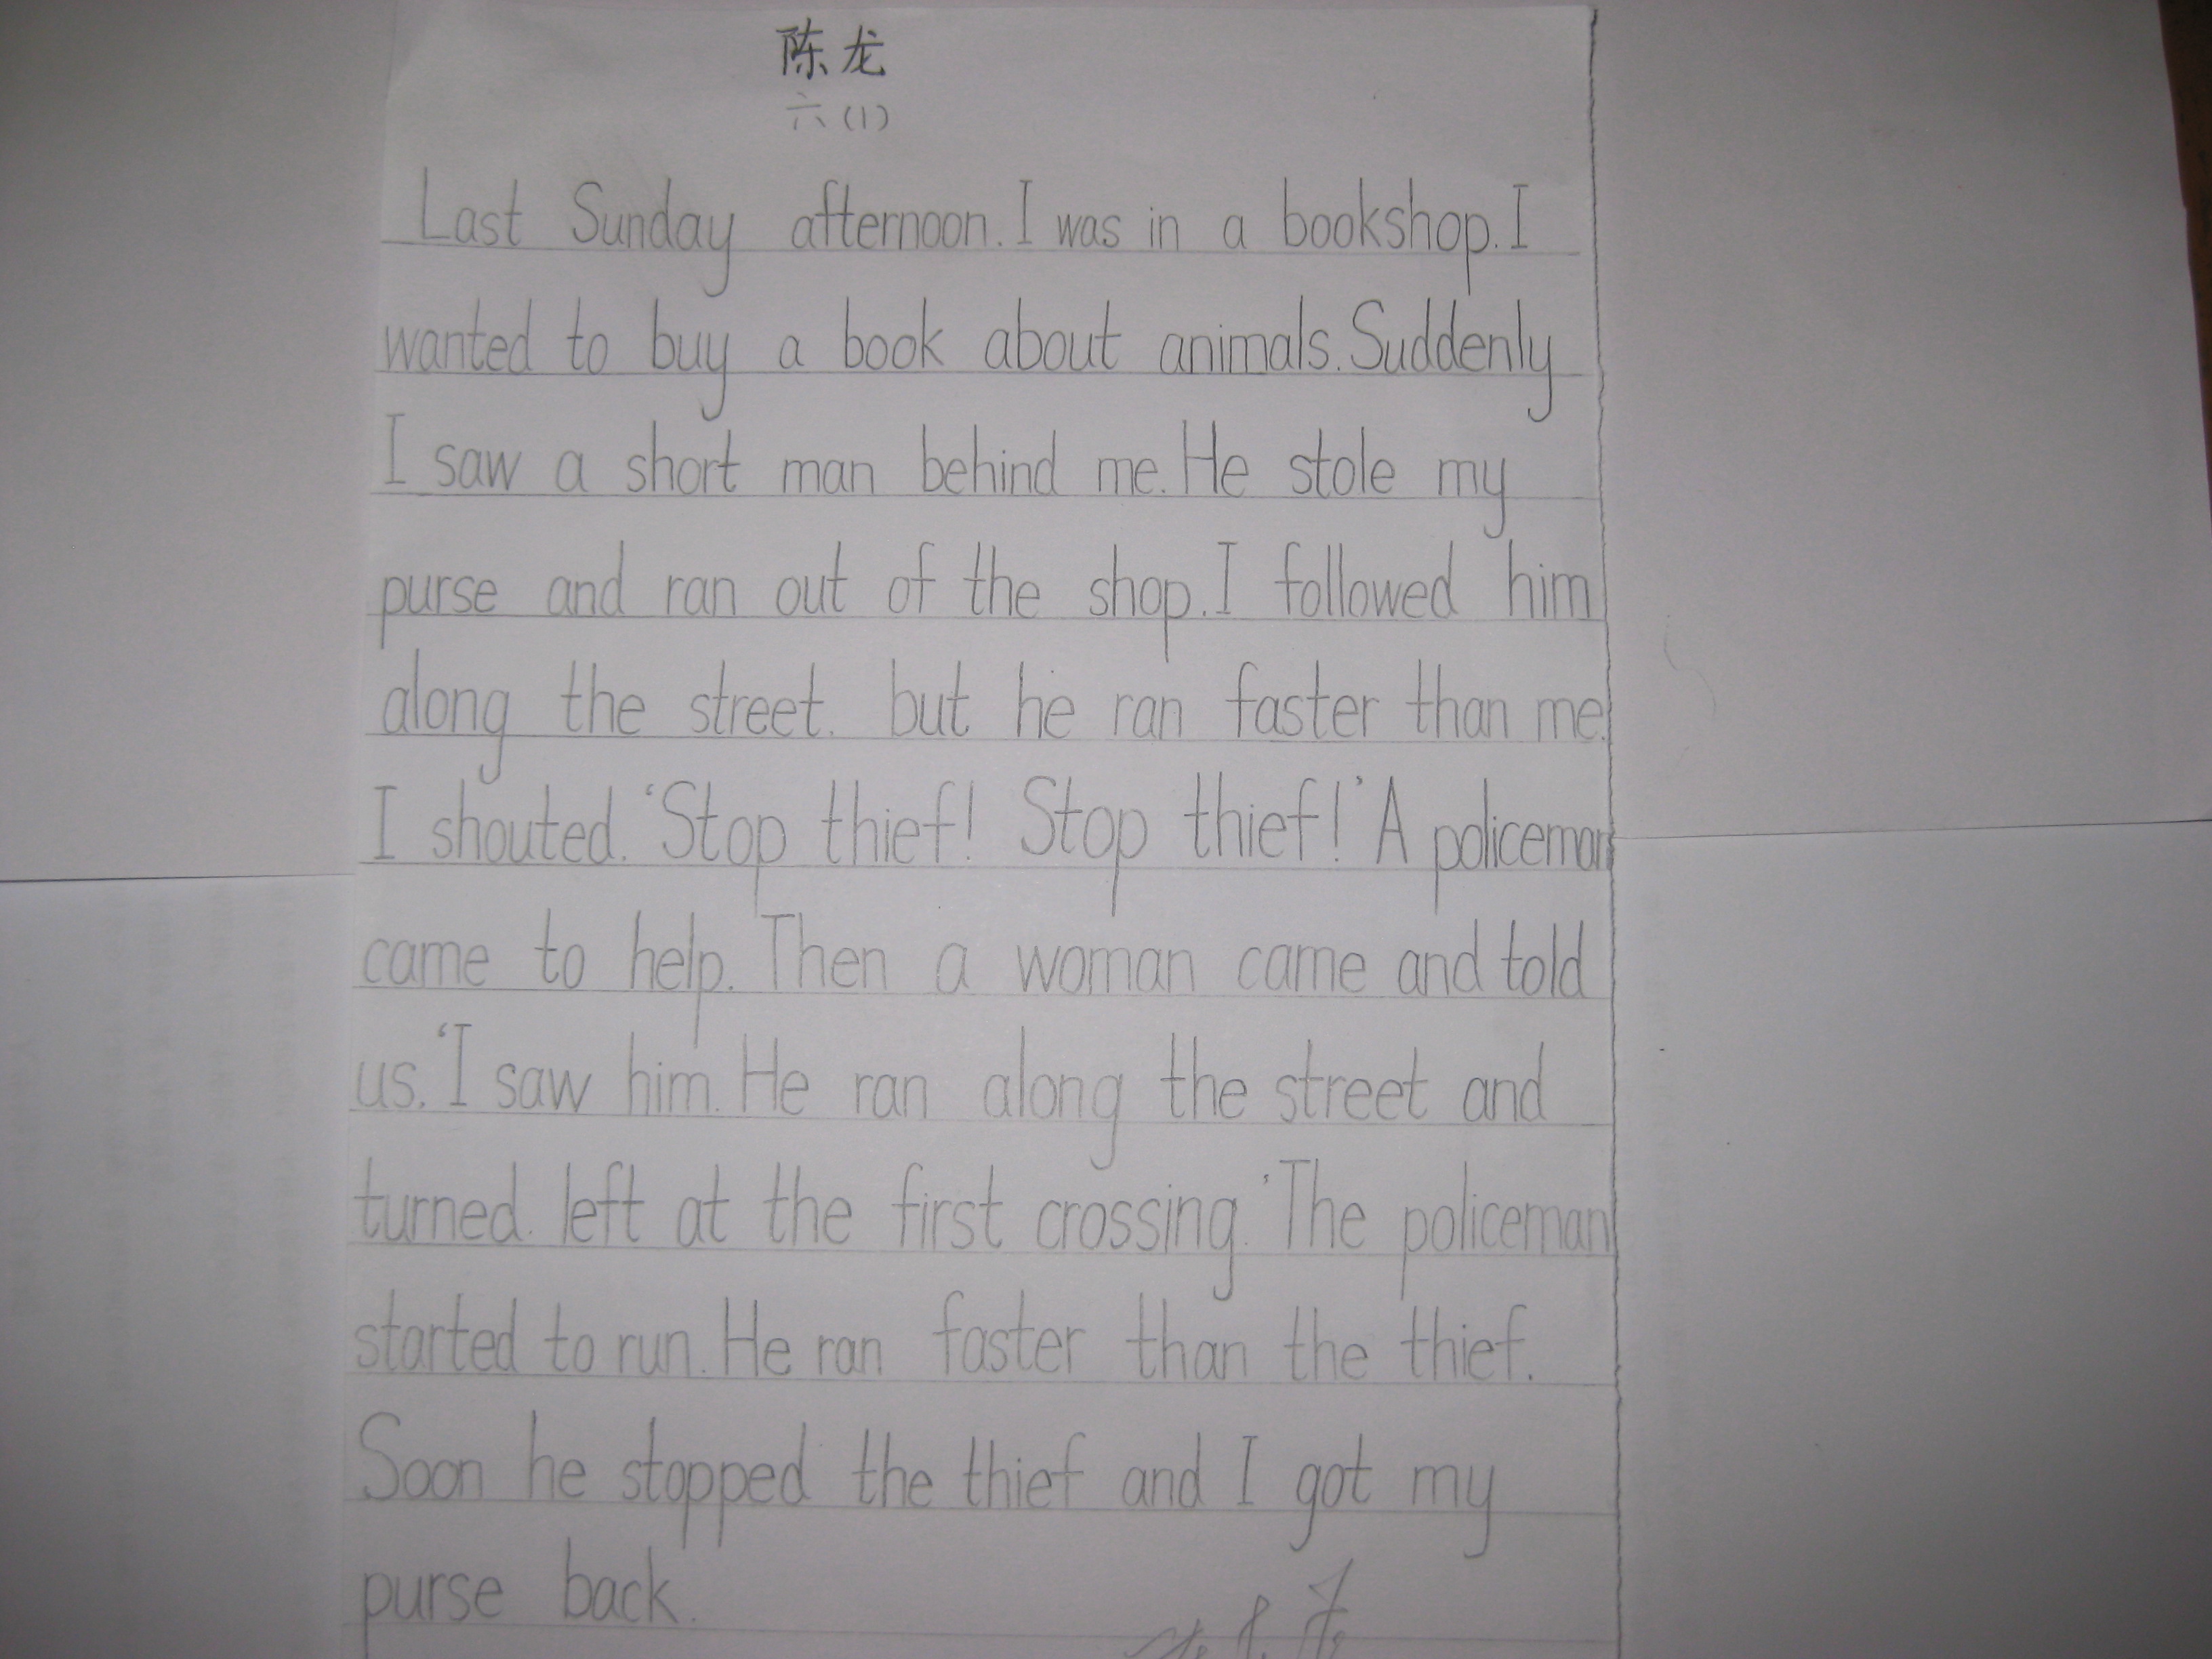 陈龙
六(1)
Last Sunday afternoon. I was in a bookshop. I
wanted to buy a book about animals. Suddenly
I saw a short man behind me. He stole my
purse and ran out of the shop. I followed him
along the street. but he ran faster than me.
I shouted. 'Stop thief! Stop thief!' A policeman
came to help. Then a woman came and told
us. 'I saw him. He ran along the street and
turned. left at the first crossing.' The policeman
started to run. He ran faster than the thief.
Soon he stopped the thief and I got my
purse back.